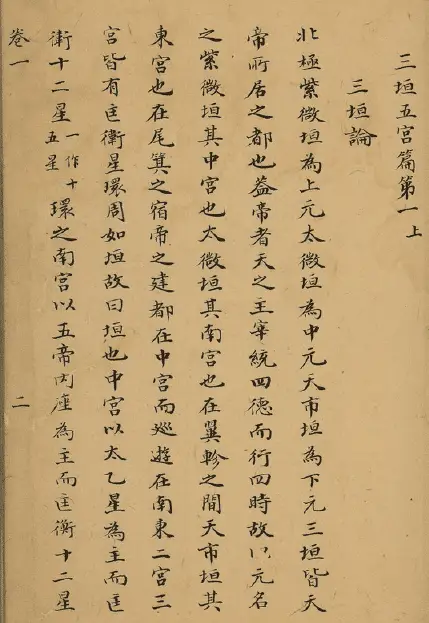 三垣五宮篇第一上
三垣論
北極紫微垣為上元太微垣為中元天市垣為下元三垣皆天
帝所居之都也葢帝者天之主宰統四德而行四時故以元名
之紫微垣其中宮也太微垣其南宮也在翼軫之間天市垣其
東宮也在尾箕之宿帝之建都在中宮而巡遊在南東二宮三
宮皆有匡衛星環周如垣故曰垣也中宮以太乙星為主而匡
衛十二星一作十五星環之南宮以五帝內座為主而匡衡十二星
卷一
二